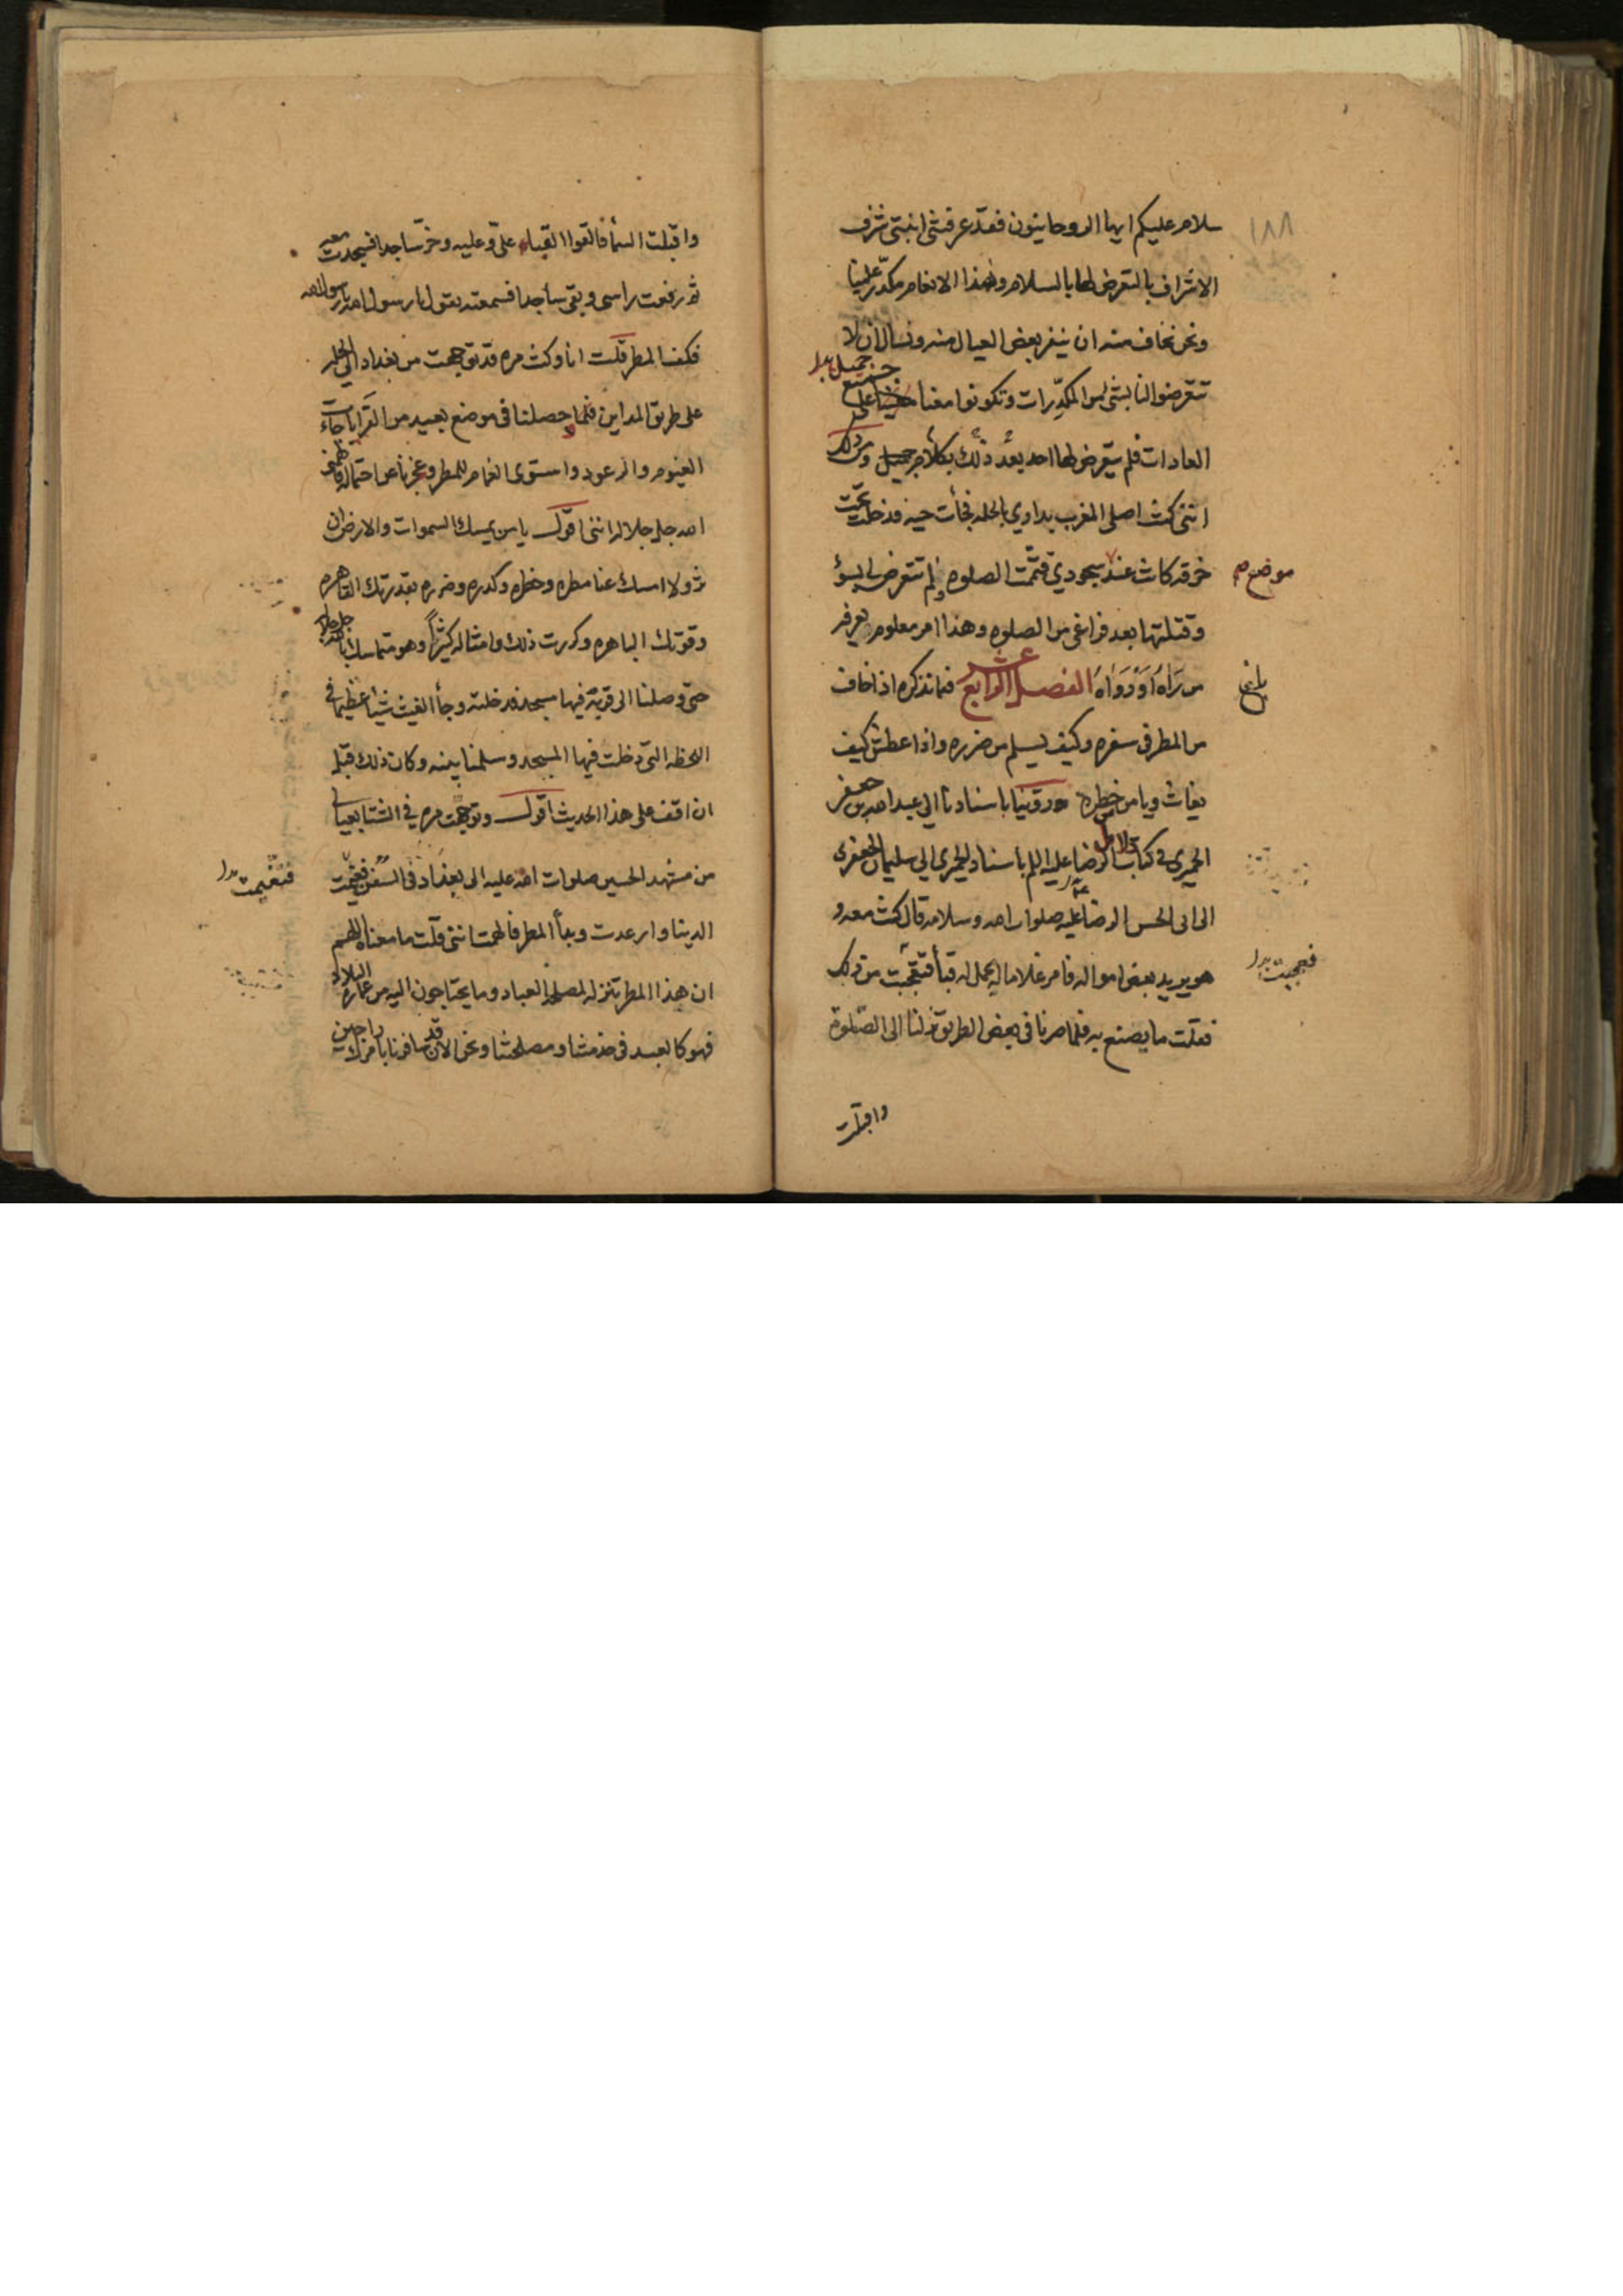 ١٨٨
سلام عليكم ايها الروحانيون فقد عرفتنى ابنتى شرف
الاشراف بالتعرض لها بالسلام وهذا الانعام مكدر علينا
ونحن نخاف منه ان ينفر بعض العيال منه ونسال ان لا
تتعرضوا لنا بشئ من المكدرات وتكونوا معنا على جميل
العادات فلم يتعرض لها احد بعد ذلك بكلام جميل ومن ذلك
اننى كنت اصلى المغرب بدارى بالحله فجأت حيه فدخلت تحت
خرقه كانت عند سجودى فتممت الصلوه ولم تتعرض لى بسوء
موضع
وقتلتها بعد فراغى من الصلوه وهذا امر معلوم يعرفه
من رآه او رواه الفصل الرابع عشر فما نذكره اذا خاف
من المطر فى سفره وكيف يسلم من ضرره واذا عطش كيف
يغاث ويامن خطره روينا باسنادنا الى عبد الله بن جعفر
الحميرى فى كتاب دلائل الرضا عليه السلم باسناد الحميرى الى سليمان الجعفرى
الى ابى الحسن الرضا عليه صلوات الله وسلامه قال كنت معه و
هو يريد بعض امواله فامر غلاما له يحمل له قبأ فتعجبت من ذلك
فعجبت
فقلت ما يصنع به فلما صرنا فى بعض الطريق نزلنا الى الصلوة
واقبلت
واقبلت السمأ فالقوا القباء علىّ وعليه وخرّ ساجدا فسجدت معه
ثم رفعت راسى وبقى ساجدا فسمعته يقول يا رسول الله يا رسول الله
فكف المطر قلت انا وكنت مره قد توجهت من بغداد الى الحله
على طريق المداين فلما حصلنا فى موضع بعيد من القرايات جاءت
الغيوم والرعود واستوى الغمام للمطر وعجزنا عن احتماله فالهمنى
الله جل جلاله اننى اقول يا من يمسك السموات والارض ان
تزولا امسك عنا مطره وخطره وكدره وضرره بقدرتك القاهره
وقوتك الباهره وكررت ذلك وامثاله كثيراً وهو متماسك بالله جل جلاله
حتى وصلنا الى قرية فيها مسجد فدخلته وجأ الغيث شيئا عظيما فى
اللحظه التى دخلت فيها المسجد وسلمنا منه وكان ذلك قبل
ان اقف على هذا الحديث اقول وتوجهت مره فى الشتا بعيالى
من مشهد الحسين صلوات الله عليه الى بغداد فى السفن فتغيمت
فتغيمت
الدنيا وارعدت وبدأ المطر فالهمت اننى قلت ما معناه اللهم
ان هذا المطر تنزله لمصلحه العباد وما يحتاجون اليه من عماره البلاد
فهو كالعبد فى خدمتنا ومصلحتنا ونحن الان قد سافرنا بامرك راجين